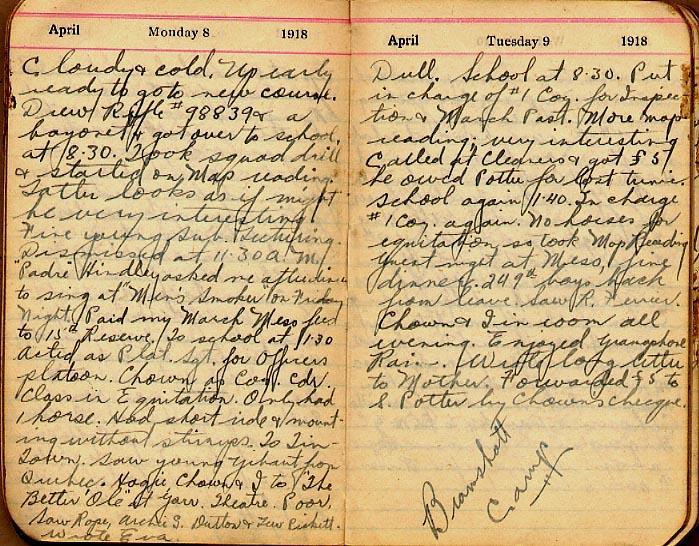 April Monday 8 1918
Cloudy & cold. Up early
ready to go to new course.
Drew Rifle #98839 & a
bayonet & got over to school
at 8:30. Took squad drill
& started on Map reading.
Latter looks as if might
be very interesting
Fine young Sub. lecturing.
Dismissed at 11.30 A.M.
"Padre" Hindley asked me after dinner
to sing at "Men's Smoker on Friday
Night. Paid my March Mess fees
to 15th Reserve. To school at 1:30
Acted as Plat. Sgt. for Officers
platoon. Chown as Coy. Cdr.
Class in Equitation. Only had
1 horse. Had short ride & mount-
ing without stirrups. To Tin-
Town. Saw young from
Quebec. Hogue Chown & I to "The
Better 'Ole" at Garr. Theatre. Poor.
Saw Rope, Archie S. Dutton & Lew Pickett.
Wrote Eva.
April Tuesday 9 1918
Dull. School at 8.30. Put
in charge of #1 Coy. for Inspec-
tion & March Past. More map
reading; very interesting
Called at Cleaners & got £5
he owed Potter for lost tunic.
School again 1:40. In charge
#1 Coy. again. No horses for
equitation so took Map Reading
Guest night at Mess, fine
dinner. 249th boys back
from leave. Saw R. Ferrier.
Chown & I in room all
evening. Enjoyed gramophone
Rain. Wrote long letter
to Mother. Forwarded £5 to
S. Potter by Chown's cheque.
Bramshott
Camp